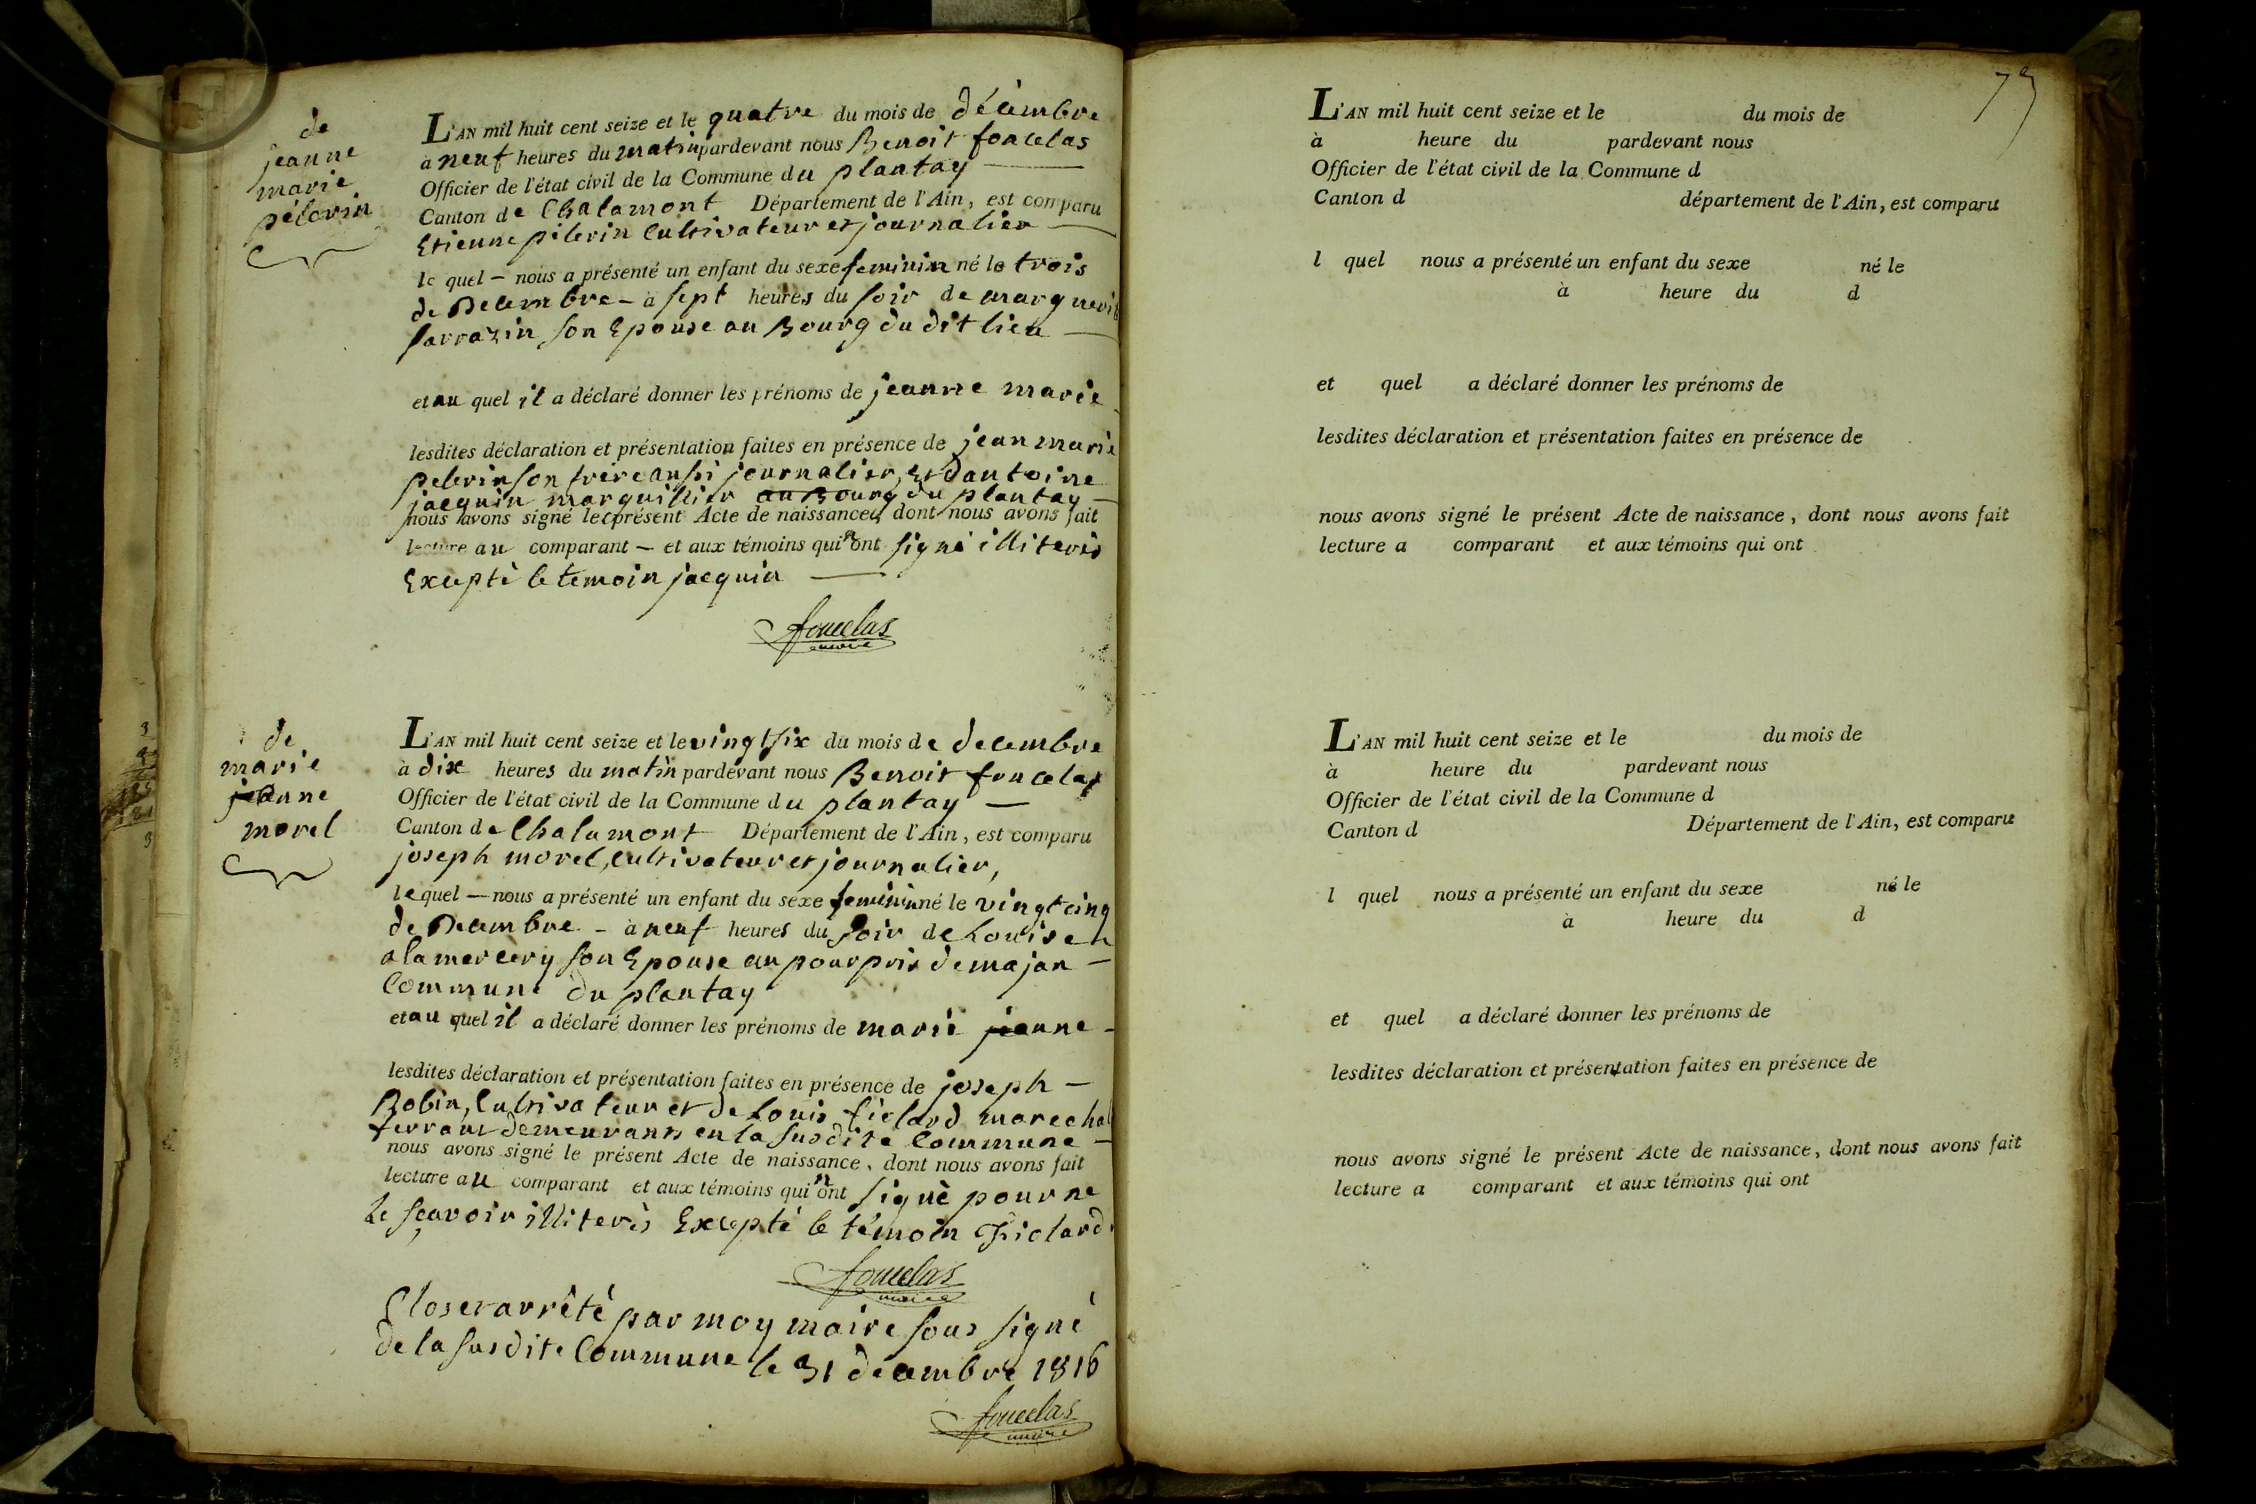 de
jeanne
marie
pélerin
L'AN mil huit cent seize et le quatre du mois de décembre
a neuf heures du matin pardevant nous Benoit foncelas
Officier de l'état civil de la Commune du plantay
Canton de Chalamont Département de l'Ain, est comparu
Etienne pélerin Cultivateur et journalier
le quel — nous a présenté un enfant du sexe feminin né le trois
de Decembre — à sept heures du soir de marguerit
sarrazin son Epouse au Bourg du dit lieu
et au quel il a déclaré donner les prénoms de jeanne marie
lesdites déclaration et présentation faites en présence de jean marie
pelerin son frère aussi journalier, Et d'antoine
jacquin marguillier au Bourg du plantay
nous avons signé le présent Acte de naissance, dont nous avons fait
lecture au comparant — et aux témoins qui n'ont signé illiterés
Excepté le temoin jacquin
foncelas
maire
de
marie
jeanne
morel
L'AN mil huit cent seize et le vingt six du mois de decembre
à dix heures du matin pardevant nous Benoit foncelas
Officier de l'état civil de la Commune du plantay
Canton de Chalamont Département de l'Ain, est comparu
joseph morel, cultivateur et journalier,
lequel — nous a présenté un enfant du sexe feminin né le vingt cinq
de Decembre — à neuf heures du soir de Louise
a la mercery son Epouse au pourpris de majan
Commune du plantay
et au quel il a déclaré donner les prénoms de marie jeanne
lesdites déclaration et présentation faites en présence de joseph
Robin, Cultivateur et de Louis ficlard marechal
ferrant demeurants en la susdite Commune
nous avons signé le présent Acte de naissance, dont nous avons fait
lecture au comparant et aux témoins qui n'ont signé pour ne
Le sçavoir illiterés Excepté le témoin Ficlard
foncelas
maire
Clos et arrêté par moy maire sous signé
de la susdite Commune le 31 decembre 1816
foncelas
maire
73
L'AN mil huit cent seize et le du mois de
à heure du pardevant nous
Officier de l'état civil de la Commune d
Canton d département de l'Ain, est comparu
l quel nous a présenté un enfant du sexe né le
à heure du d
et quel a déclaré donner les prénoms de
lesdites déclaration et présentation faites en présence de
nous avons signé le présent Acte de naissance, dont nous avons fait
lecture a comparant et aux témoins qui ont
L'AN mil huit cent seize et le du mois de
à heure du pardevant nous
Officier de l'état civil de la Commune d
Canton d Département de l'Ain, est comparu
l quel nous a présenté un enfant du sexe né le
à heure du d
et quel a déclaré donner les prénoms de
lesdites déclaration et présentation faites en présence de
nous avons signé le présent Acte de naissance, dont nous avons fait
lecture a comparant et aux témoins qui ont